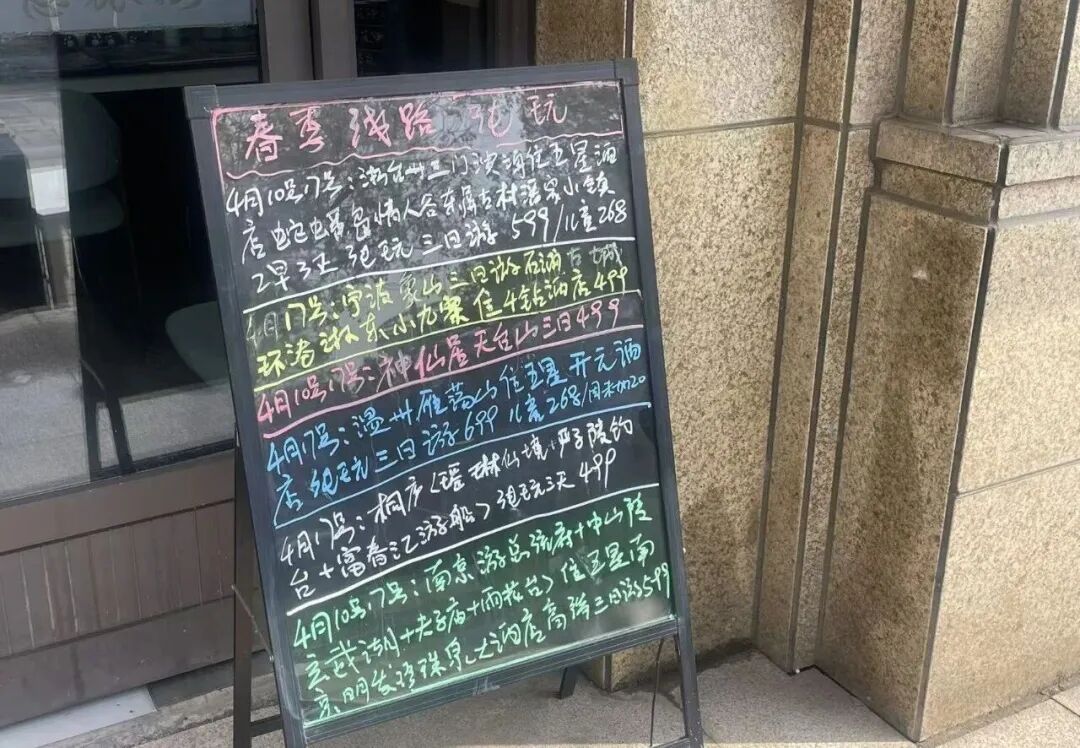 春季线路 纯玩
4月10号17号：浙台州三门滨海住五星酒
店蛇蟠岛情人谷东屏古村潘家小镇
2早3正 纯玩 三日游 599/儿童268
4月17号：宁波象山三日游石浦古城
环港浙东小九寨住4钻酒店499
4月10号17号：神仙居天台山三日499
4月17号：温州雁荡山住五星开元酒
店纯玩三日游699儿童268/周末加20
4月17号：桐庐（瑶琳仙境+严子陵钓
台+富春江游船）纯玩三天499
4月10号17号：南京游总统府+中山陵
玄武湖+夫子庙+雨花台）住五星南
京明发珍珠泉大酒店高端三日游599